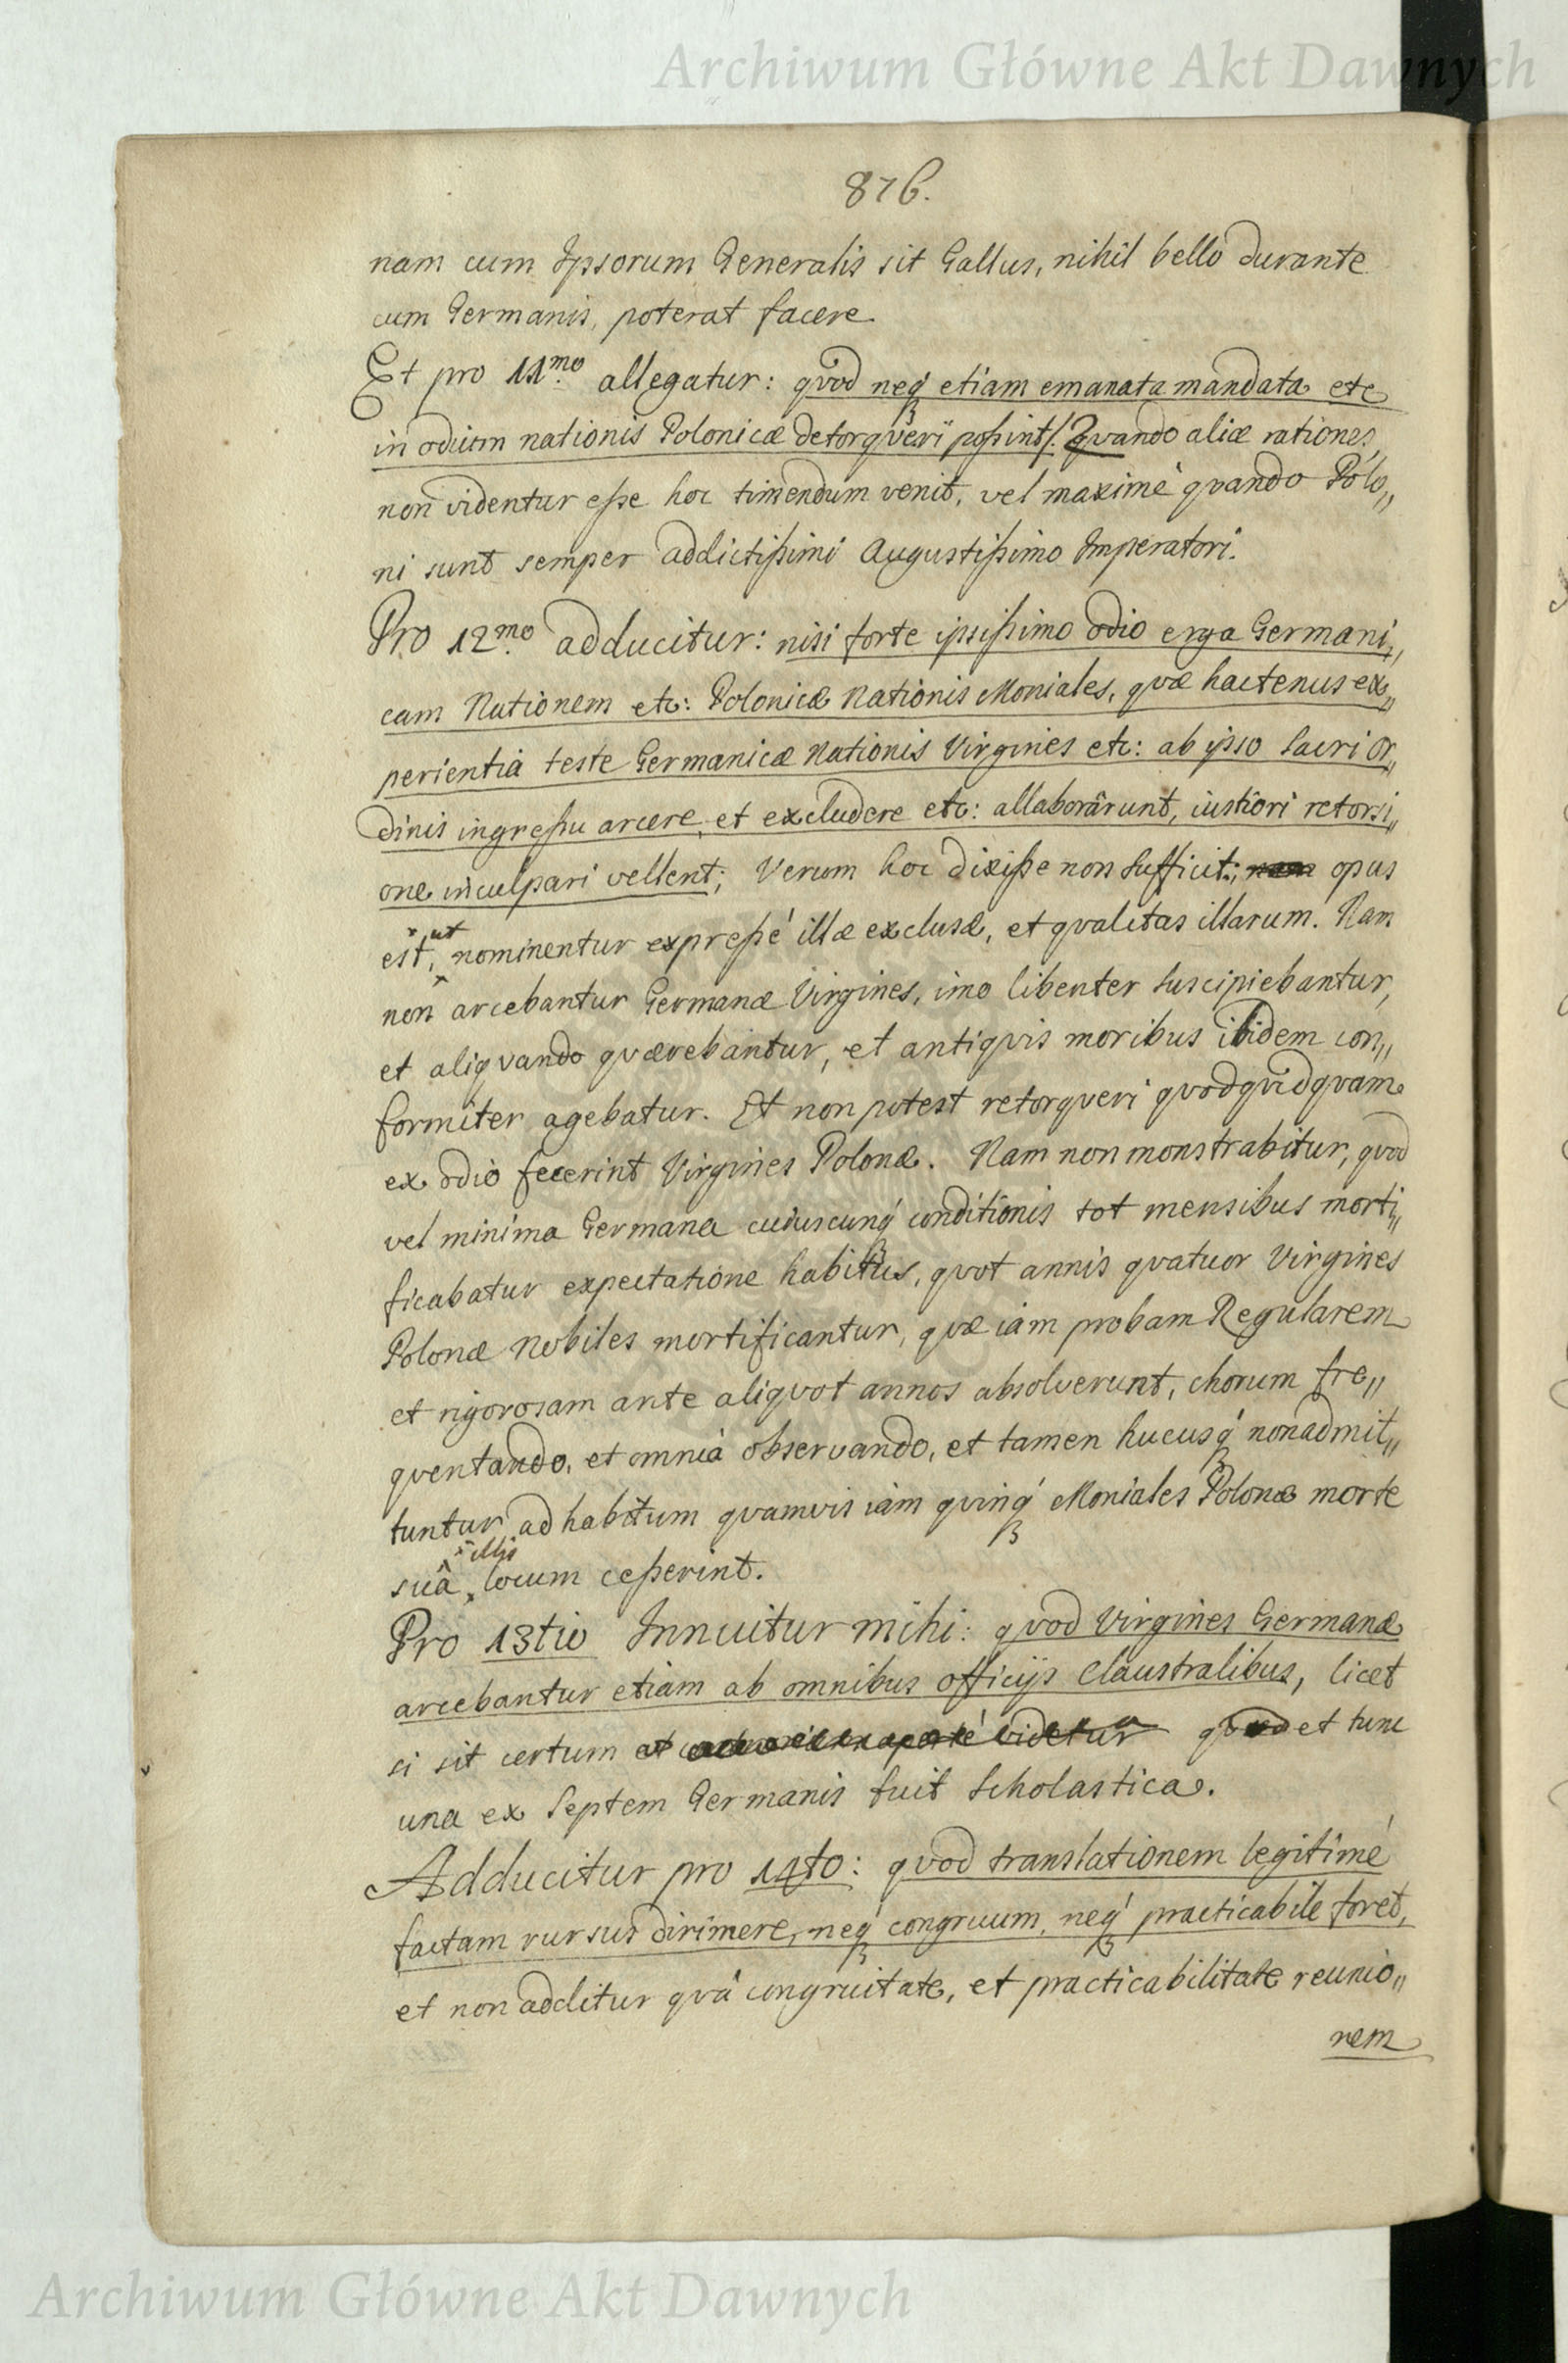 Archiwum Główne Akt Dawnych
876.
nam cum Ipsorum Generalis sit Gallus, nihil bello durante
cum Germanis, poterat facere
Et pro 11mo. allegatur: qvod neq́ etiam emanata mandata etc
in odium nationis Polonicæ detorqveri poßint/. Qvando aliæ rationes,
non videntur eße hoc timendum venit, vel maximè qvando Polo„
ni sunt semper addictißimi Augustißimo Imperatori.
Pro 12mo. adducitur: nisi forte ipsißimo odio erga Germani„
cam Nationem etc: Polonicæ Nationis Moniales, qvæ hactenus ex„
perientiâ teste Germanicæ Nationis Virgines etc: ab ipso Sacri Or„
dinis ingreßu arcere, et excludere etc: allaborârunt, iustiori retorsi„
one inculpari vellent; Verum hoc dixiße non sufficit; opus
est, ut nominentur expreßé illæ exclusæ, et qvalitas illarum. Nam
non arcebantur Germanæ Virgines, imo libenter suscipiebantur,
et aliqvando qværebantur, et antiqvis moribus ibidem con„
formiter agebatur. Et non potest retorqveri qvodqvidqvam
ex odio fecerint Virgines Polonæ. Nam non monstrabitur, qvod
vel minima Germana cuiuscunq́ conditionis tot mensibus morti„
ficabatur expectatione habitûs, qvot annis qvatuor Virgines
Polonæ Nobiles mortificantur, qvæ iam probam Regularem
et rigorosam ante aliqvot annos absolverunt, chorum fre„
qventando, et omnia observando, et tamen hucusq́ non admit„
tuntur ad habitum qvamvis iam qvinq́ Moniales Polonæ morte
suâ illis locum ceßerint.
Pro 13tio Innuitur mihi: qvod Virgines Germanæ
arcebantur etiam ab omnibus officijs Claustralibus, licet
si sit certum videtur et tunc
una ex Septem Germanis fuit Scholastica.
Adducitur pro 14to: qvod translationem legitimé
factam rursus dirimere, neq́ congruum, neq́ practicabile foret,
et non additur qvâ congruitate, et practicabilitate reunio„
nem
Archiwum Główne Akt Dawnych